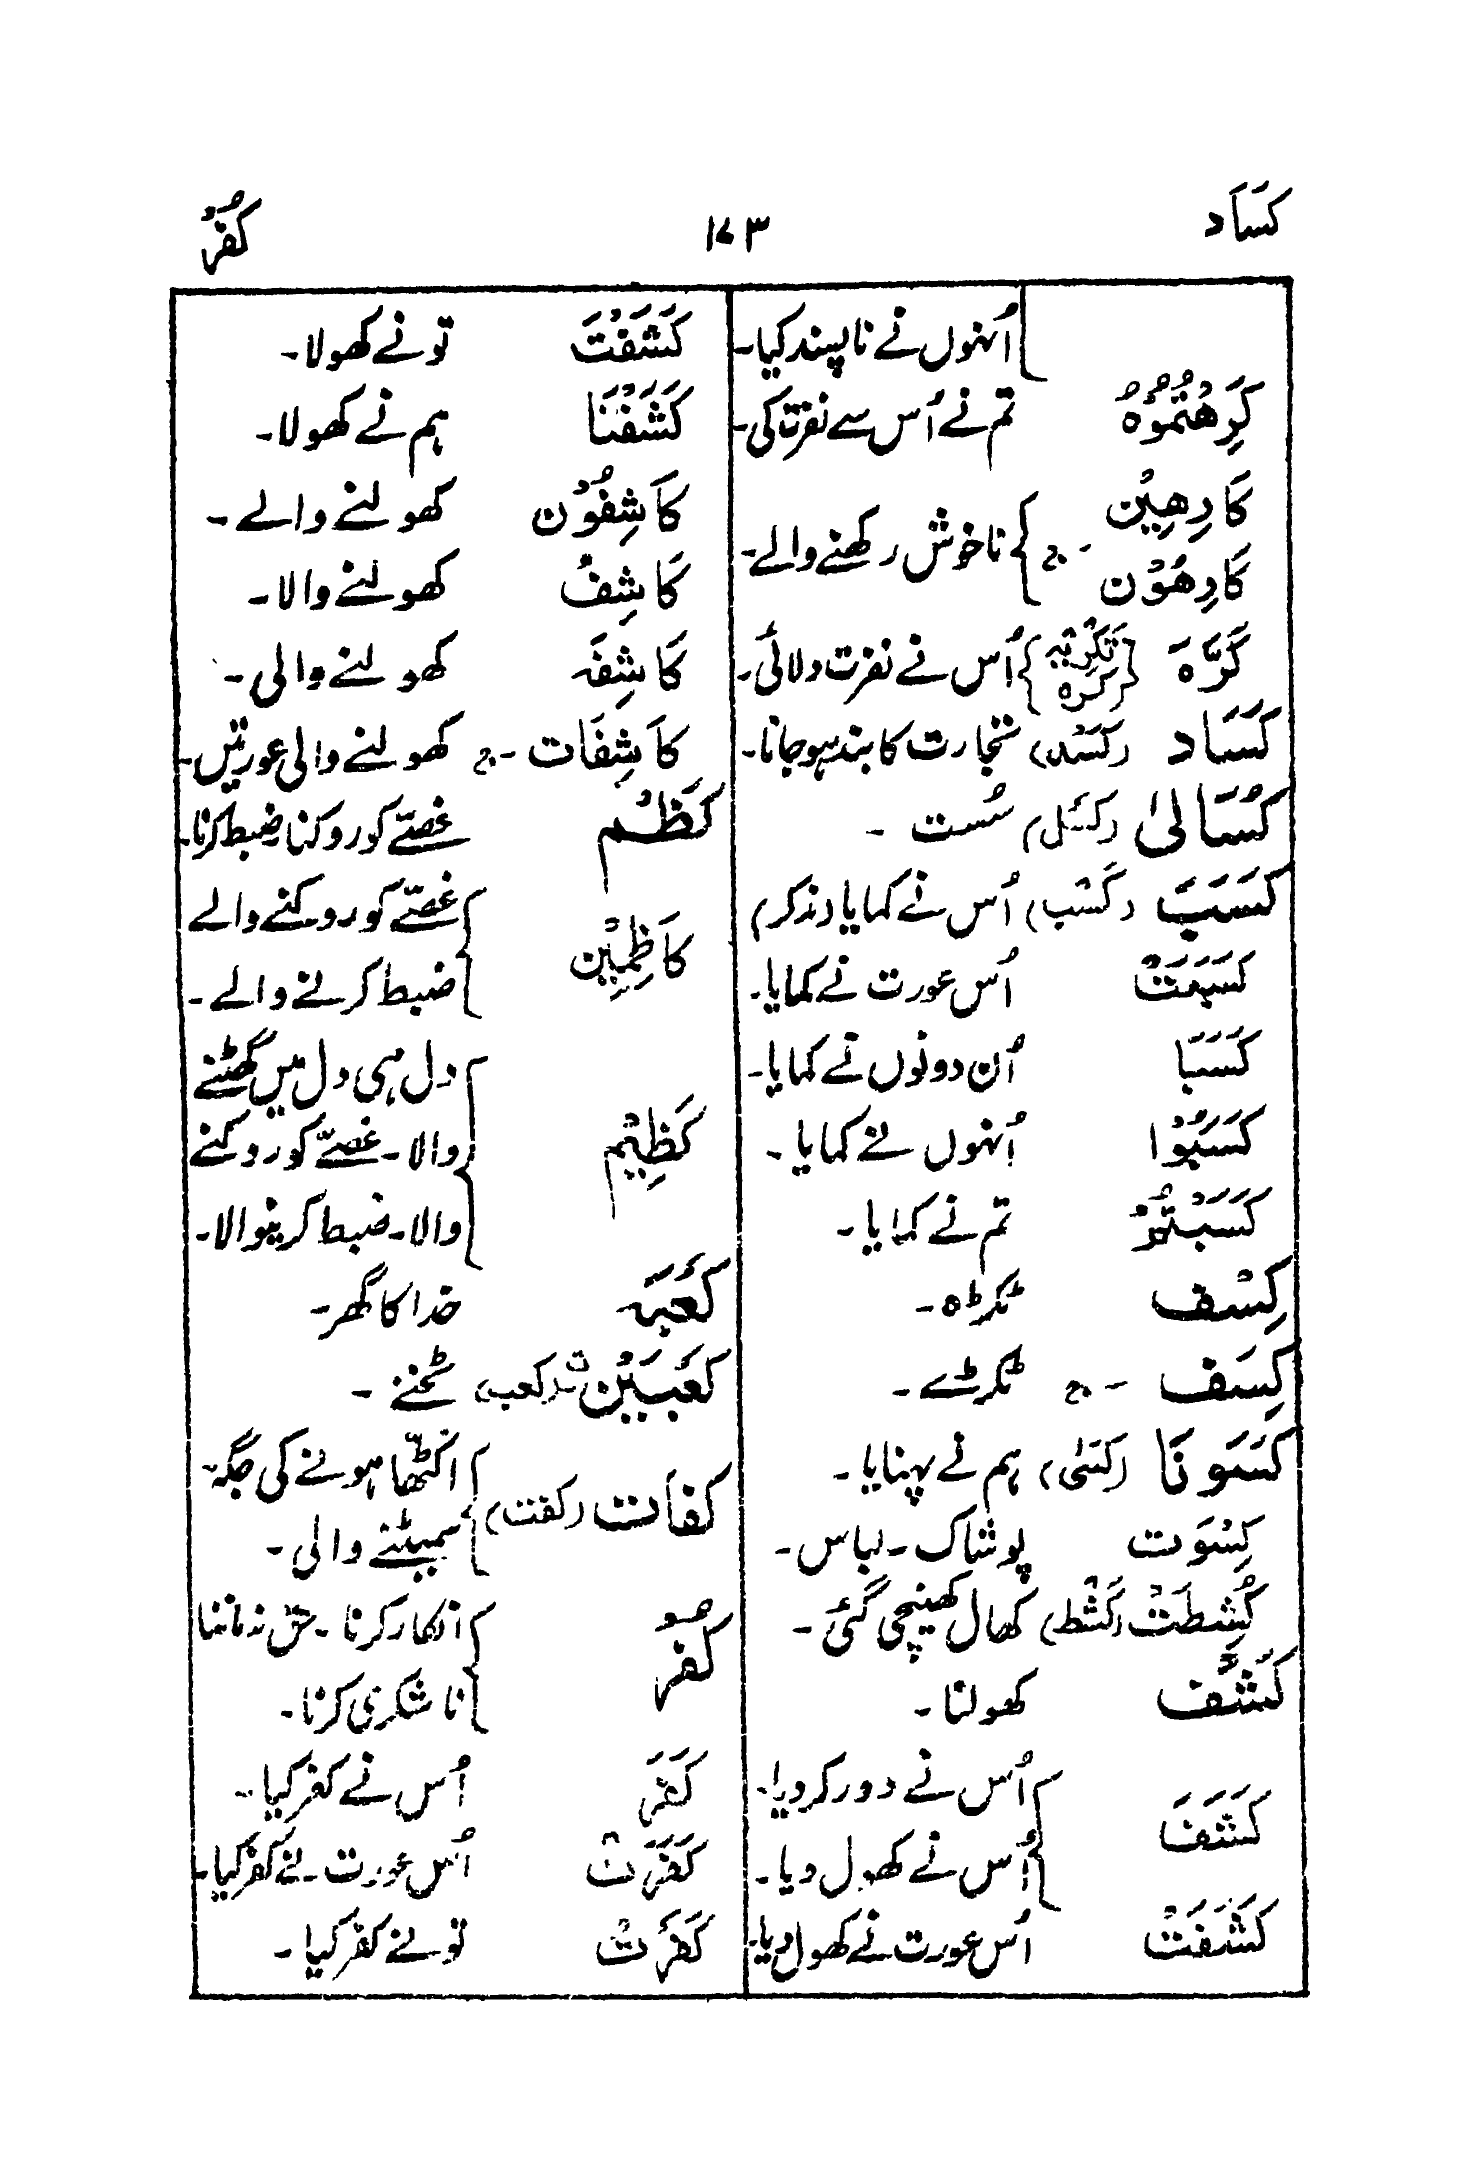 کَسَاد ۱۷۳ کُفْرُ
اُنہوں نے ناپسند کیا۔
کَرِهْتُمُوْهُ تم نے اُس سے نفرت کی۔
کَارِهِیْن
کَارِهُوْن ۔ج ناخوش رکھنے والے۔
کَرَّهَ {تَکْرِیْہ کرہ} اُس نے نفرت دلائی۔
کَسَاد (کَسْد) تجارت کا بند ہو جانا۔
کُسَالیٰ (کَسَل) سُست ۔
کَسَبَ (کَسْب) اُس نے کمایا (مذکر)
کَسَبَتْ اُس عورت نے کمایا۔
کَسَبَا اُن دونوں نے کمایا۔
کَسَبُوْا اُنہوں نے کمایا ۔
کَسَبْتُمْ تم نے کمایا ۔
کِسْف ٹکڑہ ۔
کِسَف ۔ج ٹکڑے ۔
کَسَوْنَا (کَسٰی) ہم نے پہنایا ۔
کِسْوَت پوشاک ۔ لباس ۔
کُشِطَتْ (کَشْط) کھال کھینچی گئی ۔
کَشْف کھولنا ۔
کَشَفَ اُس نے دور کر دیا۔
اُس نے کھول دیا ۔
کَشَفَتْ اُس عورت نے کھول دیا۔
کَشَفْتَ تو نے کھولا ۔
کَشَفْنَا ہم نے کھولا ۔
کَاشِفُوْن کھولنے والے ۔
کَاشِفُ کھولنے والا ۔
کَاشِفَہ کھولنے والی ۔
کَاشِفَات ۔ج کھولنے والی عورتیں ۔
کَظْم غصّے کو روکنا ضبط کرنا۔
کَاظِمِیْن غصّے کو روکنے والے
ضبط کرنے والے ۔
دل ہی دل میں گھٹنے
کَظِیْم والا ۔ غصّے کو روکنے
والا ۔ ضبط کرنیوالا ۔
کَعْبَہ خدا کا گھر ۔
کَعْبَیْن ث (کعب) ٹخنے ۔
کِفَات (کفت) اکٹھا ہونے کی جگہ۔
سمیٹنے والی ۔
کُفْر انکار کرنا ۔ حق نہ ماننا
ناشکری کرنا ۔
کَفَرَ اُس نے کفر کیا ۔
کَفَرَتْ اُس عورت نے کفر کیا ۔
کَفَرْتَ تو نے کفر کیا ۔